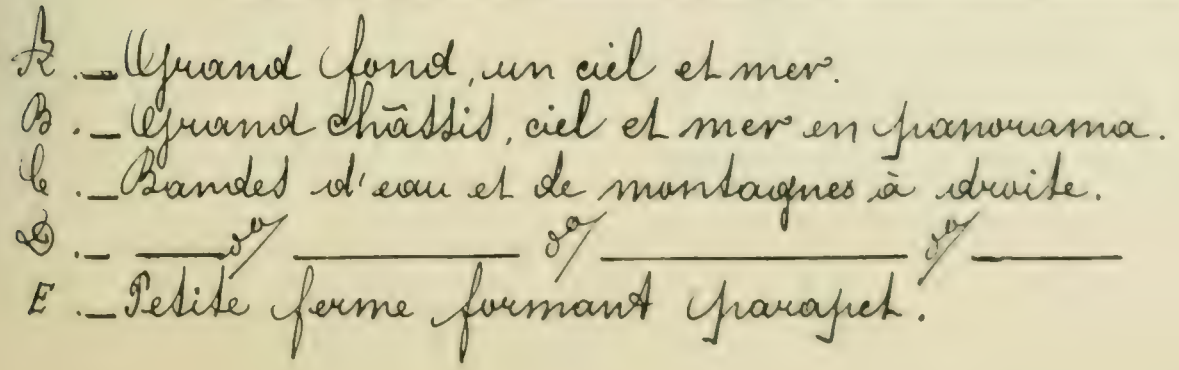 A._Grand fond, un ciel et mer.
B._Grand châssis, ciel et mer en panorama.
C._Bandes d'eau et de montagnes à droite.
D._ ___ do/ ___ do/ ___ do/ ___
E._Petite ferme formant parapet.